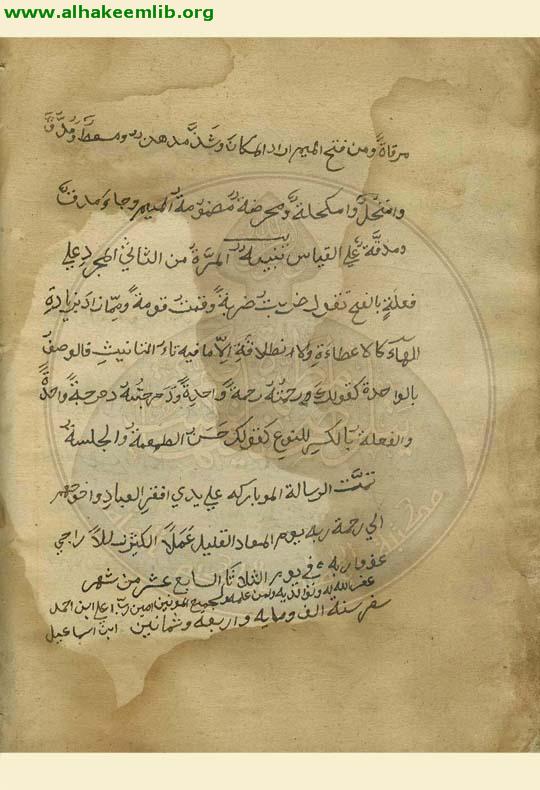 www.alhakeemlib.org
مرقاةً ومن فتح الميم اراد المكان وشذَّ مدهن ومسعط ومُدُقٌّ
وامنخلٌ وامكحلة ومحرضة مضمومة الميم وجاء مدقٌ
ومدقَّة علي القياس تنبيه المرَّة من الثاثي المجرد علي
فعلةٍ بالفتح تقول ضربت ضربةً وقمت قومةً وممّا زاد بزيادةِ
الهآء كالاعطاءةِ والانطلاقةِ الّا ما فيه تاء التانيثِ فالوصف
بالواحدة كقولك رحمتُه رحمةً واحدةً ودحرجته دحرجةً واحدةً
والفعلة بالكسر للنوع كقولك حَسَن الطعمة والجلسة
تمّت الرسالة الموباركه علي يدي افقر العباد واحوجهم
الي رحمة ربه يوم المعاد القليل عَمَلاً الكثير زللاً راجي
عفو ربه في يوم الثلاثا السابع عشر من شهر
غفر الله له ولوالديه ولمن علمه ولجميع المومنين امين رب علي ابن احمد
سفر سنة الف ومايه واربعه وثمانين ابن اسماعيل